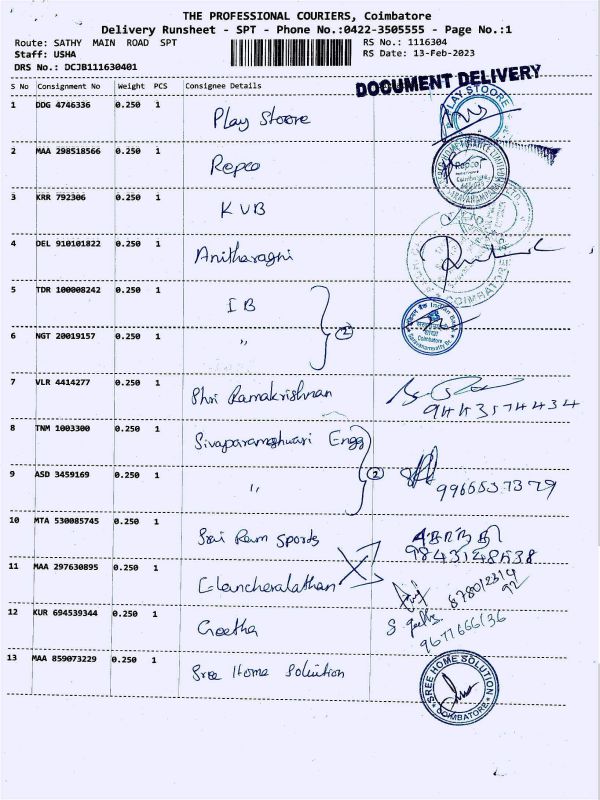 THE PROFESSIONAL COURIERS, Coimbatore
Delivery Runsheet - SPT - Phone No.:0422-3505555 - Page No.:1
Route: SATHY MAIN ROAD SPT RS No.: 1116304
Staff: USHA RS Date: 13-Feb-2023
DRS No.: DCJB111630401
DOCUMENT DELIVERY
S No Consignment No Weight PCS Consignee Details
1 DDG 4746336 0.250 1 Play Stoore
PLAY STOORE
2 MAA 298518566 0.250 1 Repco
Repco
3 KRR 792306 0.250 1 KVB
COIMBATORE
4 DEL 910101822 0.250 1 Anitharagni
5 TDR 100008242 0.250 1 IB
Indian Bank
Coimbatore
6 NGT 20019157 0.250 1 " 2
7 VLR 4414277 0.250 1 Shri Ramakrishnan
9443574434
8 TNM 1003300 0.250 1 Sivaparameshwari Engg
9 ASD 3459169 0.250 1 " 2
9966537379
10 MTA 530085745 0.250 1 Sri Ram Sports
11 MAA 297630895 0.250 1 Elancheralathan
12 KUR 694539344 0.250 1 Geetha
S geetha
9677666136
13 MAA 859073229 0.250 1 Sree Home Solution
SREE HOME SOLUTION
COIMBATORE